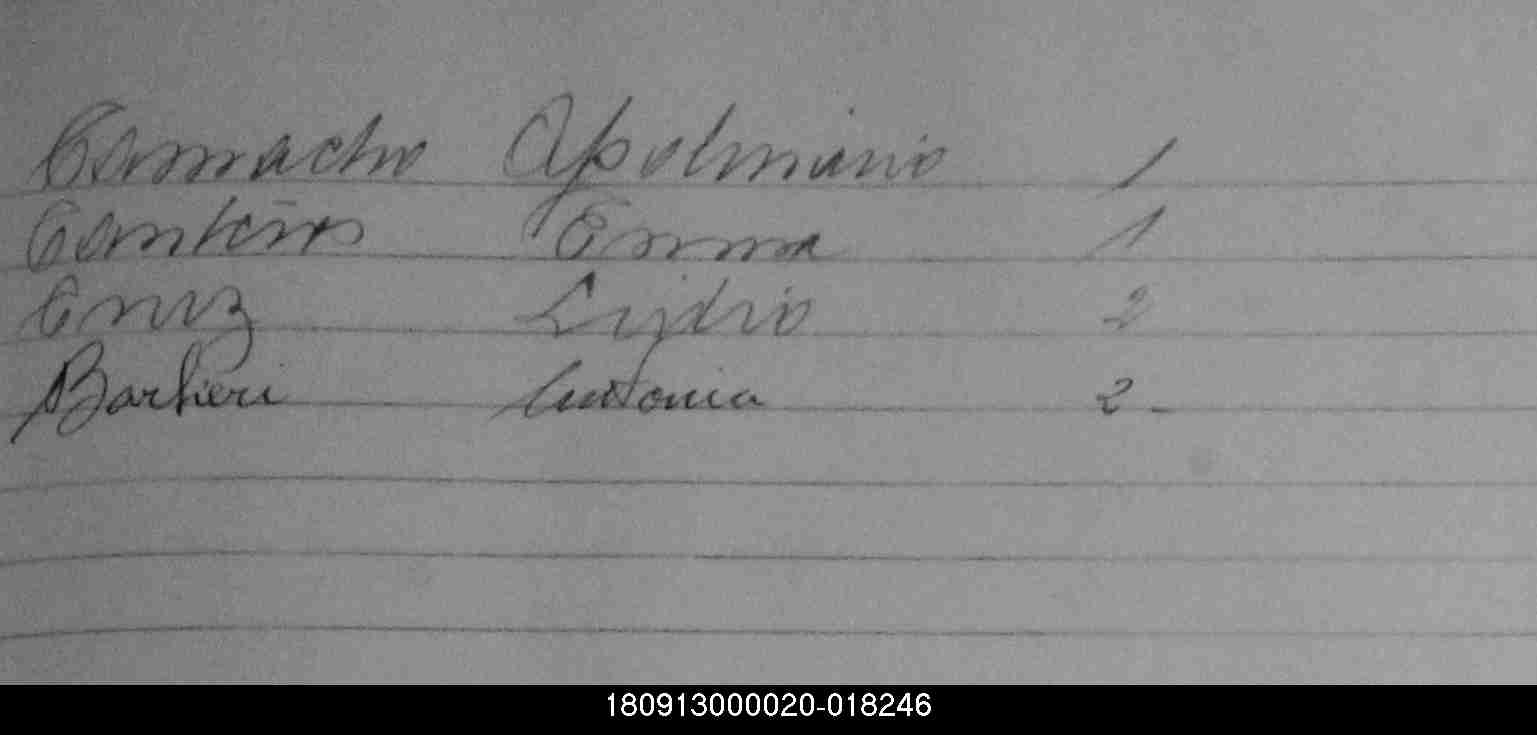 Camacho Apolinario 1
Canteros Emma 1
Cruz Lidio 2
Barbieri Antonia 2-
180913000020-018246